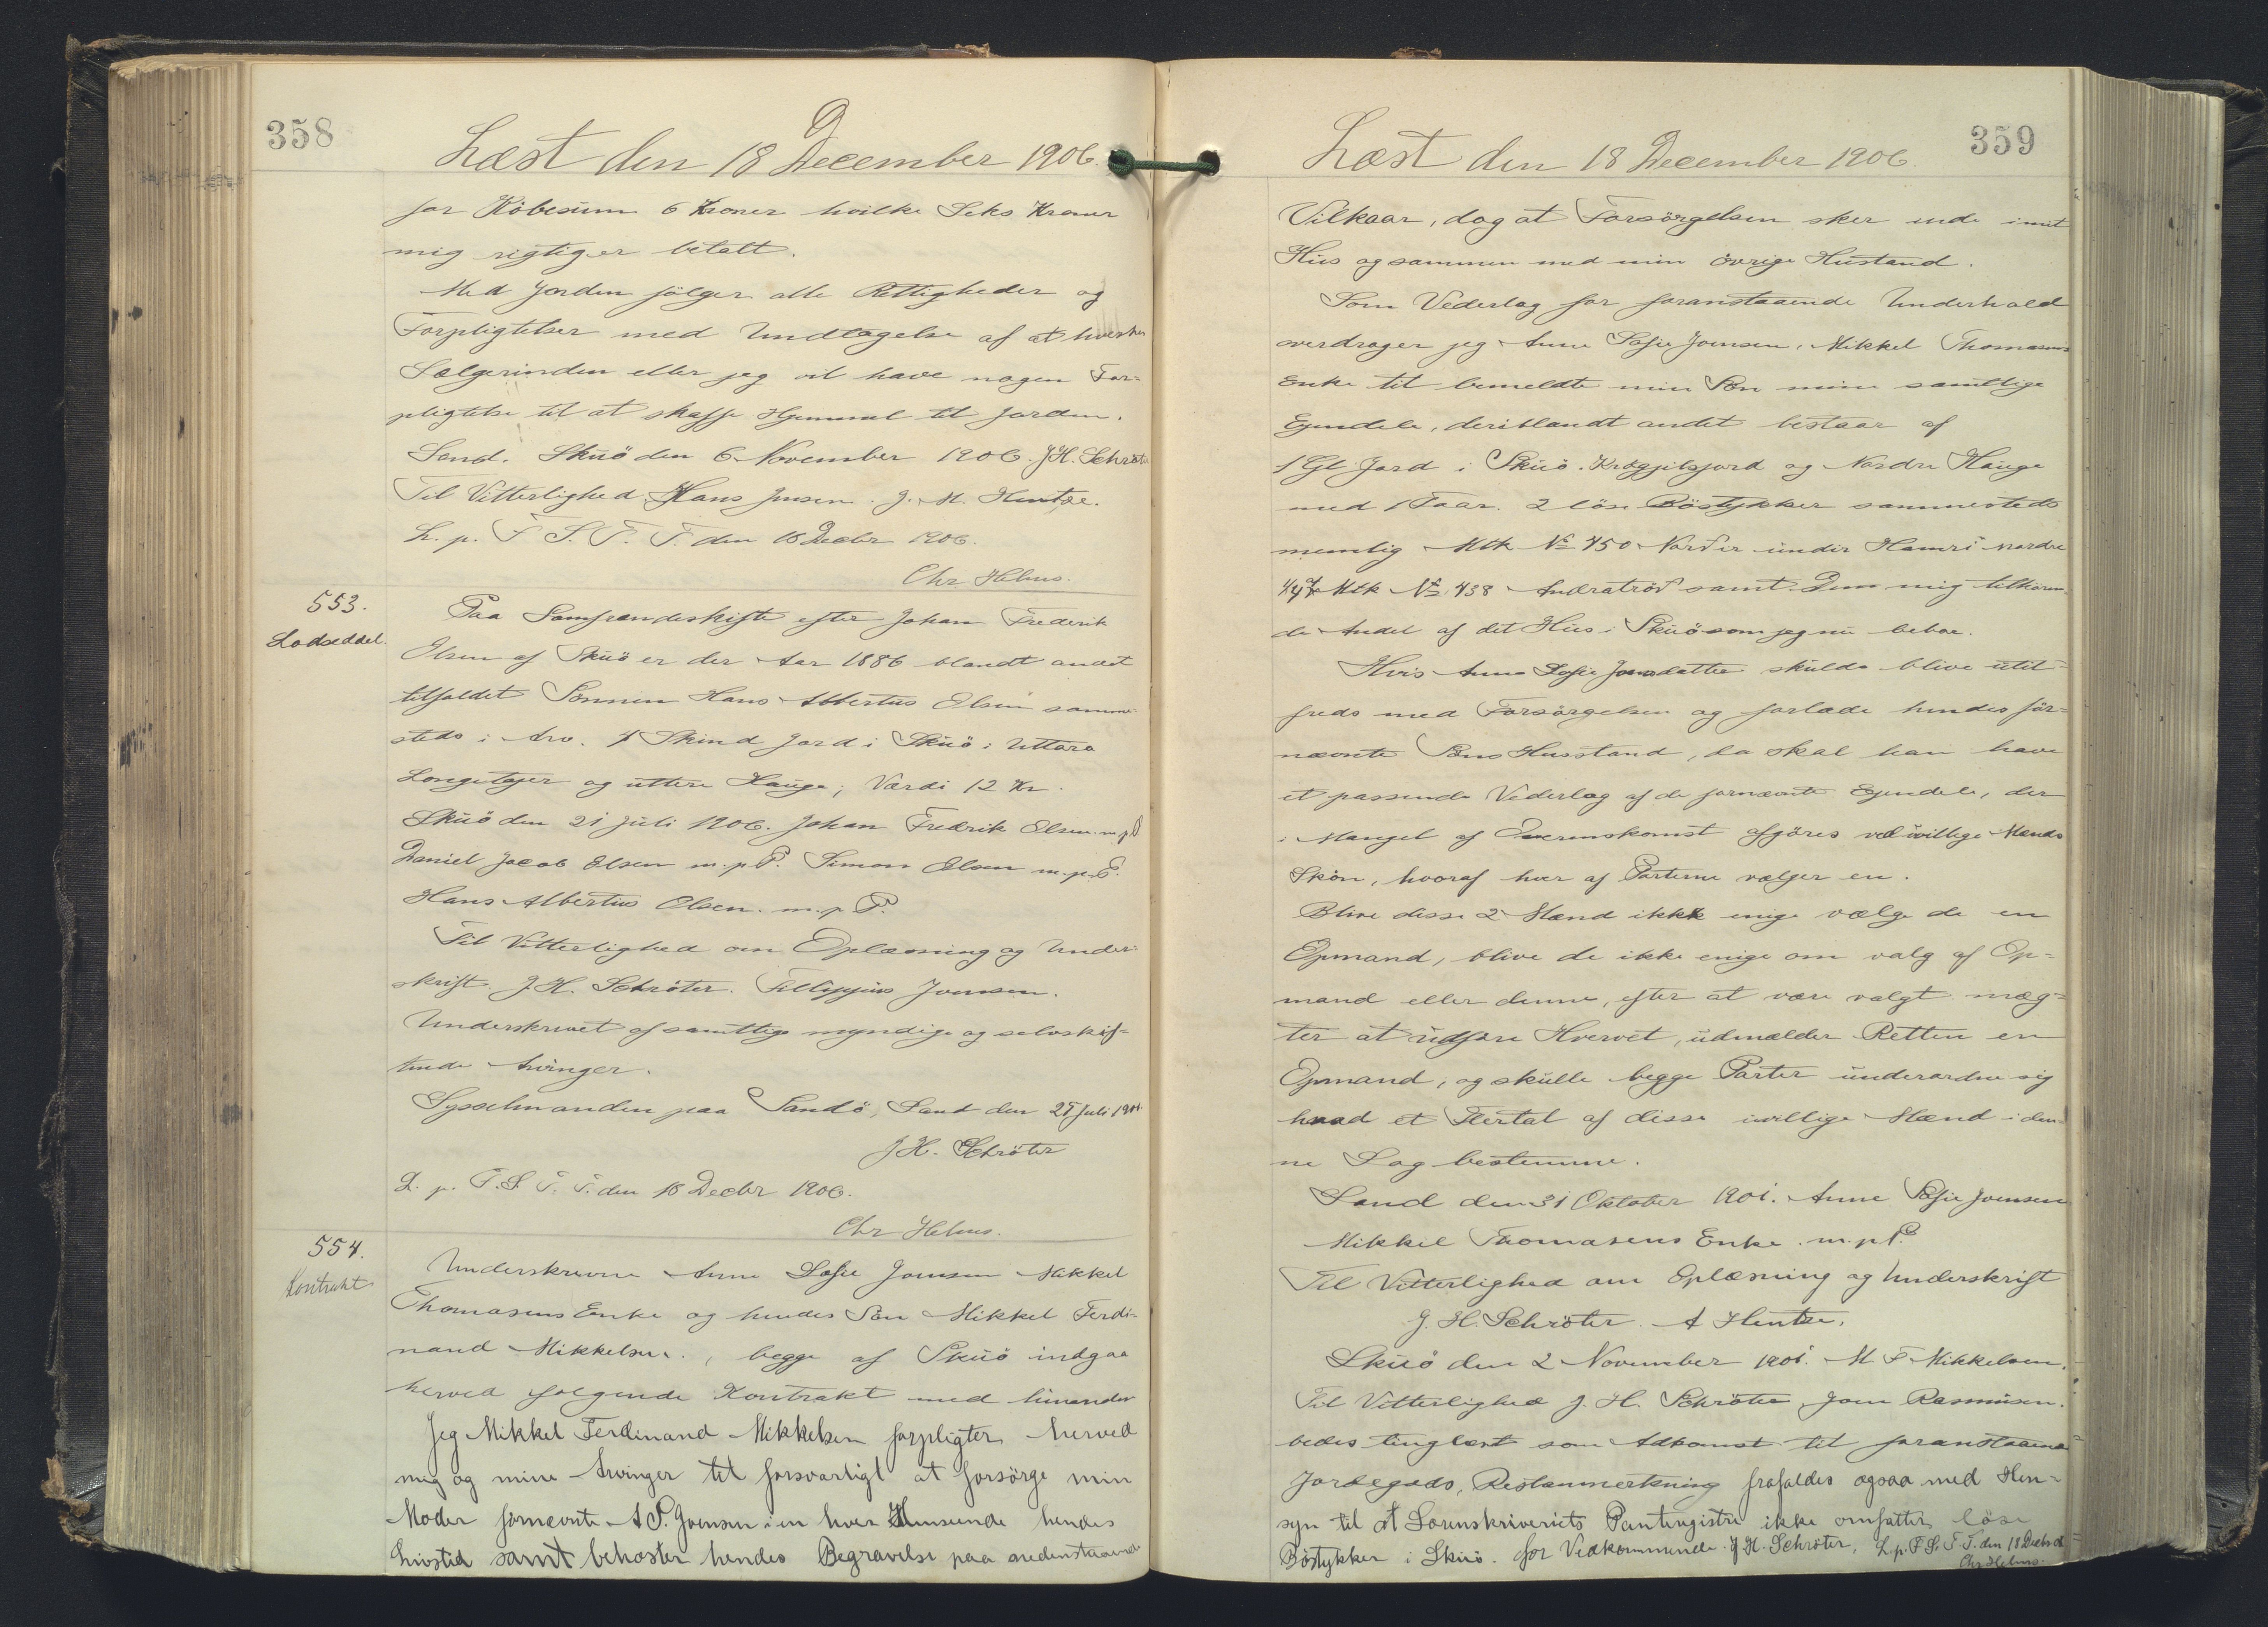 358
Læst den 18 December 1906.
for Köbesum 6 Kroner hvilke Seks Kroner
mig rigtig er betalt.
Med Jorden følger alle Rettigheder og
Forpligtelser med Undtagelse af at hverken
Sælgerinden eller jeg vil have nogen For-
pligtelse til at skaffe Hjemmel til Jorden.
Sand. Skuö den 6 November 1906. J.H. Schröter
Til Vitterlighed Hans Jensen. J. M. Hentze.
L. p. F. S. T. T. den 18 Decbr 1906.
Chr Helms.
553.
Lodseddel.
Paa Samfrændeskifte efter Johan Frederik
Olsen af Skuö er der Aar 1886 blandt andet
tilfaldet Sønnen Hans Albertus Olsen samme-
steds i Arv. 4 Skind Jord i Skuö i Uttara
Longutajer og uttere Hauge; Værdi 12 Kr.
Skuö den 21 Juli 1906. Johan Fredrik Olsen m.p.P
Daniel Jacob Olsen m.p.P. Simon Olsen m.p.P.
Hans Albertus Olsen. m.p.P.
Til Vitterlighed om Oplæsning og Under-
skrift J.H. Schröter. Filippus Joensen.
Underskrevet af samtlige myndige og selvskif-
tende Arvinger.
Sysselmanden paa Sandö, Sand den 25 Juli 1906
J.H. Schröter
L. p. F. S. T. T. den 18 Decbr 1906.
Chr Helms.
554.
Kontrakt
Underskrevne Anne Sofie Joensen Mikkel
Thomasens Enke og hendes Sön Mikkel Ferdi-
nand Mikkelsen, begge af Skuö indgaa
herved følgende Kontrakt med hinanden
Jeg Mikkel Ferdinand Mikkelsen forpligter herved
mig og mine Arvinger til forsvarligt at forsörge min
Moder fornævnte A S. Joensen i en hver Henseende hendes
Livstid samt bekoster hendes Begravelse paa nedenstaaende
359
Læst den 18 December 1906.
Vilkaar, dog at Forsörgelsen sker inde i mit
Hus og sammen med min övrige Hustand.
Som Vederlag for foranstaaende Underhold
overdrager jeg Anne Sofie Joensen, Mikkel Thomasens
Enke til bemeldte min Sön mine samtlige
Ejendele, deriblandt andet bestaar af
1 Gl Jord i Skuö. Krøgjilsjord og Nordre Hauge
med 1 Faar. 2 löse Böstykker sammesteds
nemlig Mtk No 450 Norður undir Hamri nordre
1/4 af Mtk No 438 Andratröð samt Den mig tilkommen-
de Andel af det Hus i Skuö som jeg nu beboe.
Hvis Anne Sofie Jonsdatter skulde blive util-
freds med Forsörgelsen og forlade hendes för-
nævnte Söns Husstand, da skal han have
et passende Vederlag af de fornævnte Ejendele, der
i Mangel af Overenskomst afgöres ved uvillige Mænds
Skön, hvoraf hver af Parterne vælger en.
Blive disse 2 Mænd ikke enige vælge de en
Opmand, blive de ikke enige om valg af Op-
mand eller denne, efter at være valgt næg-
ter at udføre Hvervet, udmælder Retten en
Opmand, og skulle begge Parter underordne sig
hvad et Flertal af disse uvillige Mænd i den-
ne Sag bestemme.
Sand den 31 Oktober 1901. Anne Sofie Joensen
Mikkel Thomasens Enke. m.p.P.
Til Vitterlighed om Oplæsning og Underskrift
J. H. Schröter. A Hentze.
Skuö den 2 November 1901. M F Mikkelsen.
Til Vitterlighed J. H. Schröter, Joen Rasmusen.
bedes tinglæst som Adkomst til foranstaaende
Jordegods, Restanmerkning frafaldes ogsaa med Hen-
syn til at Sorenskriveriets Panteregistre ikke omfatter löse
Böstykker i Skuö. For Vedkommende J H. Schröter. L. p. F. S. T. T. den 18 Decbr 06
Chr Helms.